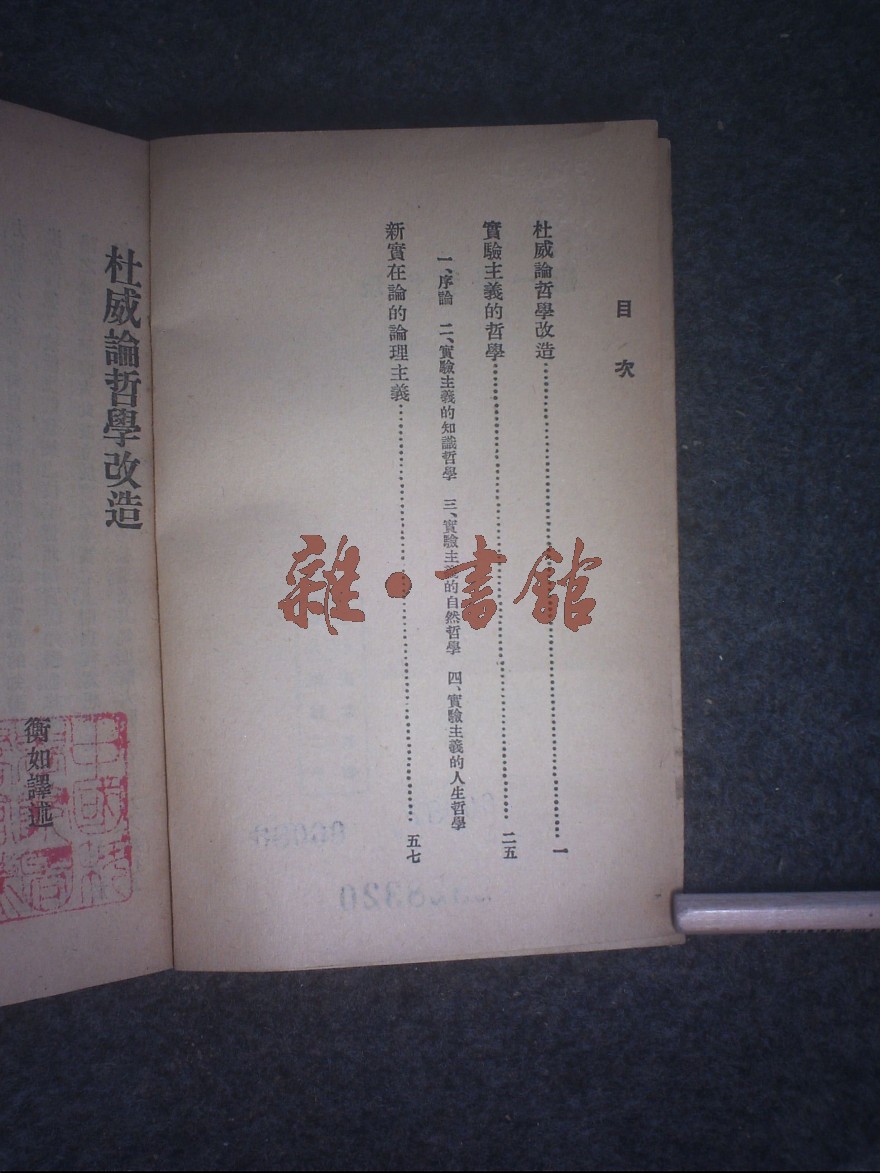 目次
杜威論哲學改造……一
實驗主義的哲學……二五
一、序論 二、實驗主義的知識哲學 三、實驗主義的自然哲學 四、實驗主義的人生哲學
新實在論的論理主義……五七
杜威論哲學改造
衡如譯述
雜·書館